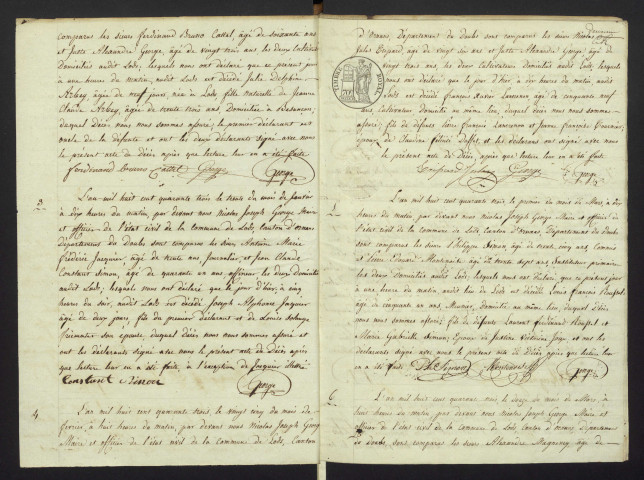 comparus les sieurs Ferdinand Bruno Cattet, âgé de soixante ans
et Juste Alexandre George, âgé de vingt trois ans les deux Cultivateurs
Domiciliés audit Lods, lesquels nous ont déclaré que ce présent jour
à une heure du matin, audit Lods est décédé Julie Delphine
Arbey, âgée de neuf jours née à Lods fille naturelle de Jeanne
Claude Arbey, âgée de trente trois ans, Domiciliée à Besançon,
duquel Décès nous nous sommes assuré, le premier déclarant est
oncle de la défunte et ont les deux Déclarants signé avec nous
le présent acte de Décès après que lecture leur en a été faite
Ferdinand bruno Cattet George George
3
L'an mil huit cent quarante trois le treize du mois de Janvier
à dix heures du matin, par devant nous Nicolas Joseph George Maire
et officier de l'état civil de la commune de Lods canton d'Ornans
département du Doubs sont comparus les sieurs Antoine Marie
Frédéric Jacquier, âgé de trente ans, Journalier, et Jean Claude
Constant Simon, âgé de quarante un ans, les deux Domiciliés
audit Lods; lesquels nous ont déclaré que le jour d'hier, à cinq
heures du soir, audit Lods est décédé Joseph Alphonse Jaquier
âgé de deux jours, fils du premier déclarant et de Louise
son épouse, duquel décès nous nous sommes assuré et
ont les déclarants signé avec nous le présent acte de Décès après
que lecture leur en a été faite, à l'exception de Jacquier illétré
Constant Simon George
4
L'an mil huit cent quarante trois, le vingt cinq du mois de
février, à huit heures du matin, par devant nous Nicolas Joseph George
Maire et officier de l'état civil de la commune de Lods, Canton
d'Ornans, Département du Doubs sont comparus les sieurs Nicolas
Jules âgé de vingt six ans et Juste Alexandre George, âgé de
vingt trois ans, les deux Cultivateurs domiciliés audit Lods, lesquels
nous ont déclaré que le jour d'hier à dix heures du matin audit
Lods est décédé François Xavier âgé de cinquante neuf
ans Cultivateur domicilié au même lieu, duquel décès nous nous sommes
assuré, fils de défunts Pierre François et Jeanne Françoise
époux de Claudine et les déclarants ont signé avec nous
le présent acte de Décès après que lecture leur en a été faite
George George
5
L'an mil huit cent quarante trois, le premier du mois de Mars, à dix
heures du matin, par devant nous Nicolas Joseph George, Maire et officier
de l'état civil de la commune de Lods Canton d'Ornans, Département du Doubs
sont comparus les sieurs Philippe Simon, âgé de trente cinq ans, Commis
et Pierre âgé de trente sept ans, Instituteur primaire
les deux Domiciliés audit Lods; lesquels nous ont déclaré, que ce présent jour
à une heure du matin audit lieu de Lods est décédé Louis François
âgé de cinquante un ans, Meunier, domicilié au même lieu, duquel décès
nous nous sommes assuré; fils de défunts Laurent Ferdinand et
Marie Gabrielle Simon, époux de Justine Victorine et ont les
déclarants signé avec nous le présent acte de Décès après que lecture leur
en a été faite Ph. Simon George
6
L'an mil huit cent quarante trois, le douze du mois de Mars, à
huit heures du matin, par devant nous Nicolas Joseph George Maire et
officier de l'état civil de la commune de Lods canton d'Ornans département
du Doubs, sont comparus les sieurs Alexandre Magnenez âgé de